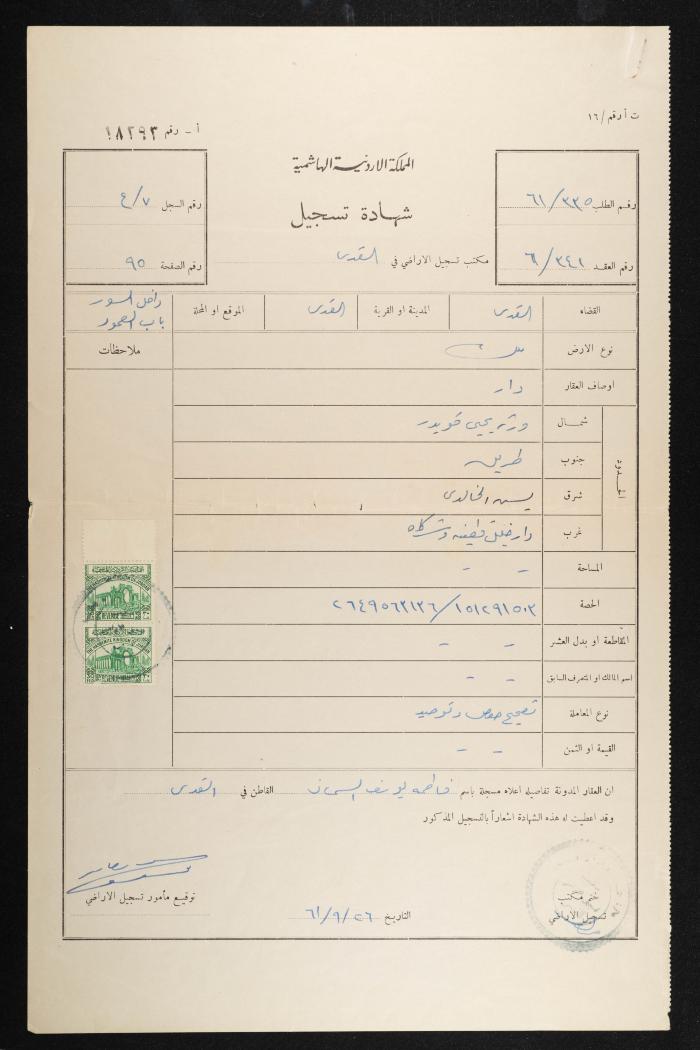 ت أ رقم / ١٦
أ - رقم ١٨٢٩٣
المملكة الاردنية الهاشمية
شهادة تسجيل
مكتب تسجيل الاراضي في القدس
رقم الطلب ٦١/٣٣٥
رقم العقد ٦١/٣٤١
رقم السجل ٤/٧
رقم الصفحة ٩٥
القضاء القدس المدينة او القرية القدس الموقع او المحلة داخل السور
باب العمود
نوع الارض ملك
ملاحظات
اوصاف العقار دار
الحدود
شمال ورثة يحيى قويدر
جنوب طريق
شرق يسن الخالدي
غرب دار خليل قطينه وشركاه
المساحة - -
الحصة ١٥١٢٩١٥٠٣/٢٦٤٩٥٦٢١٣٦
المقاطعة او بدل العشر - -
اسم المالك او المتصرف السابق - -
نوع المعاملة تصحيح حصص وتوحيد
القيمة او الثمن - -
ان العقار المدونة تفاصيله اعلاه مسجلة باسم فاطمه يوسف السمان القاطن في القدس
وقد اعطيت له هذه الشهادة اشعاراً بالتسجيل المذكور
ختم مكتب
تسجيل الاراضي
التاريخ ٦١/٩/٢٦
توقيع مأمور تسجيل الاراضي